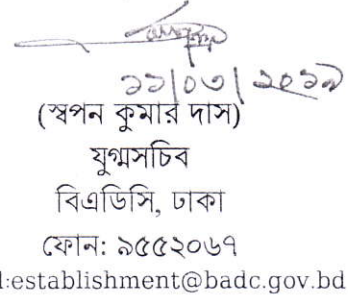 ১১/০৩/২০১৯
(স্বপন কুমার দাস)
যুগ্মসচিব
বিএডিসি, ঢাকা
ফোন: ৯৫৫২০৬৭
l:establishment@badc.gov.bd